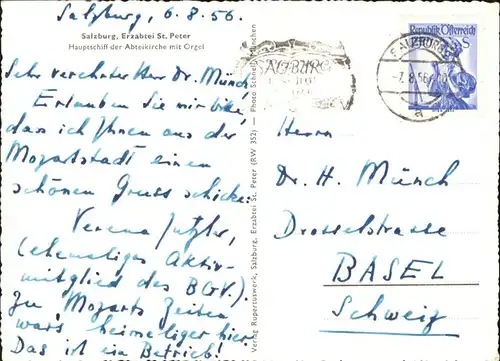 Salzburg, 6.8.56.
Salzburg, Erzabtei St. Peter
Hauptschiff der Abteikirche mit Orgel
Sehr verehrter Herr Dr. Münch,
Erlauben Sie mir bitte,
dass ich Ihnen aus der
Mozartstadt einen
schönen Gruss schicke.
Verena
(ehemaliges Aktiv-
mitglied des BGV.).
Zu Mozarts Zeiten
wars heimeliger hier.
Das ist ein Betrieb!
Verlag Rupertuswerk, Salzburg, Erzabtei St. Peter (RW 352) — Photo Schnell, München
Republik Österreich
S
SALZBURG
-7.8.56
a
Herrn
Dr. H. Münch
Drosselstrasse
BASEL
Schweiz